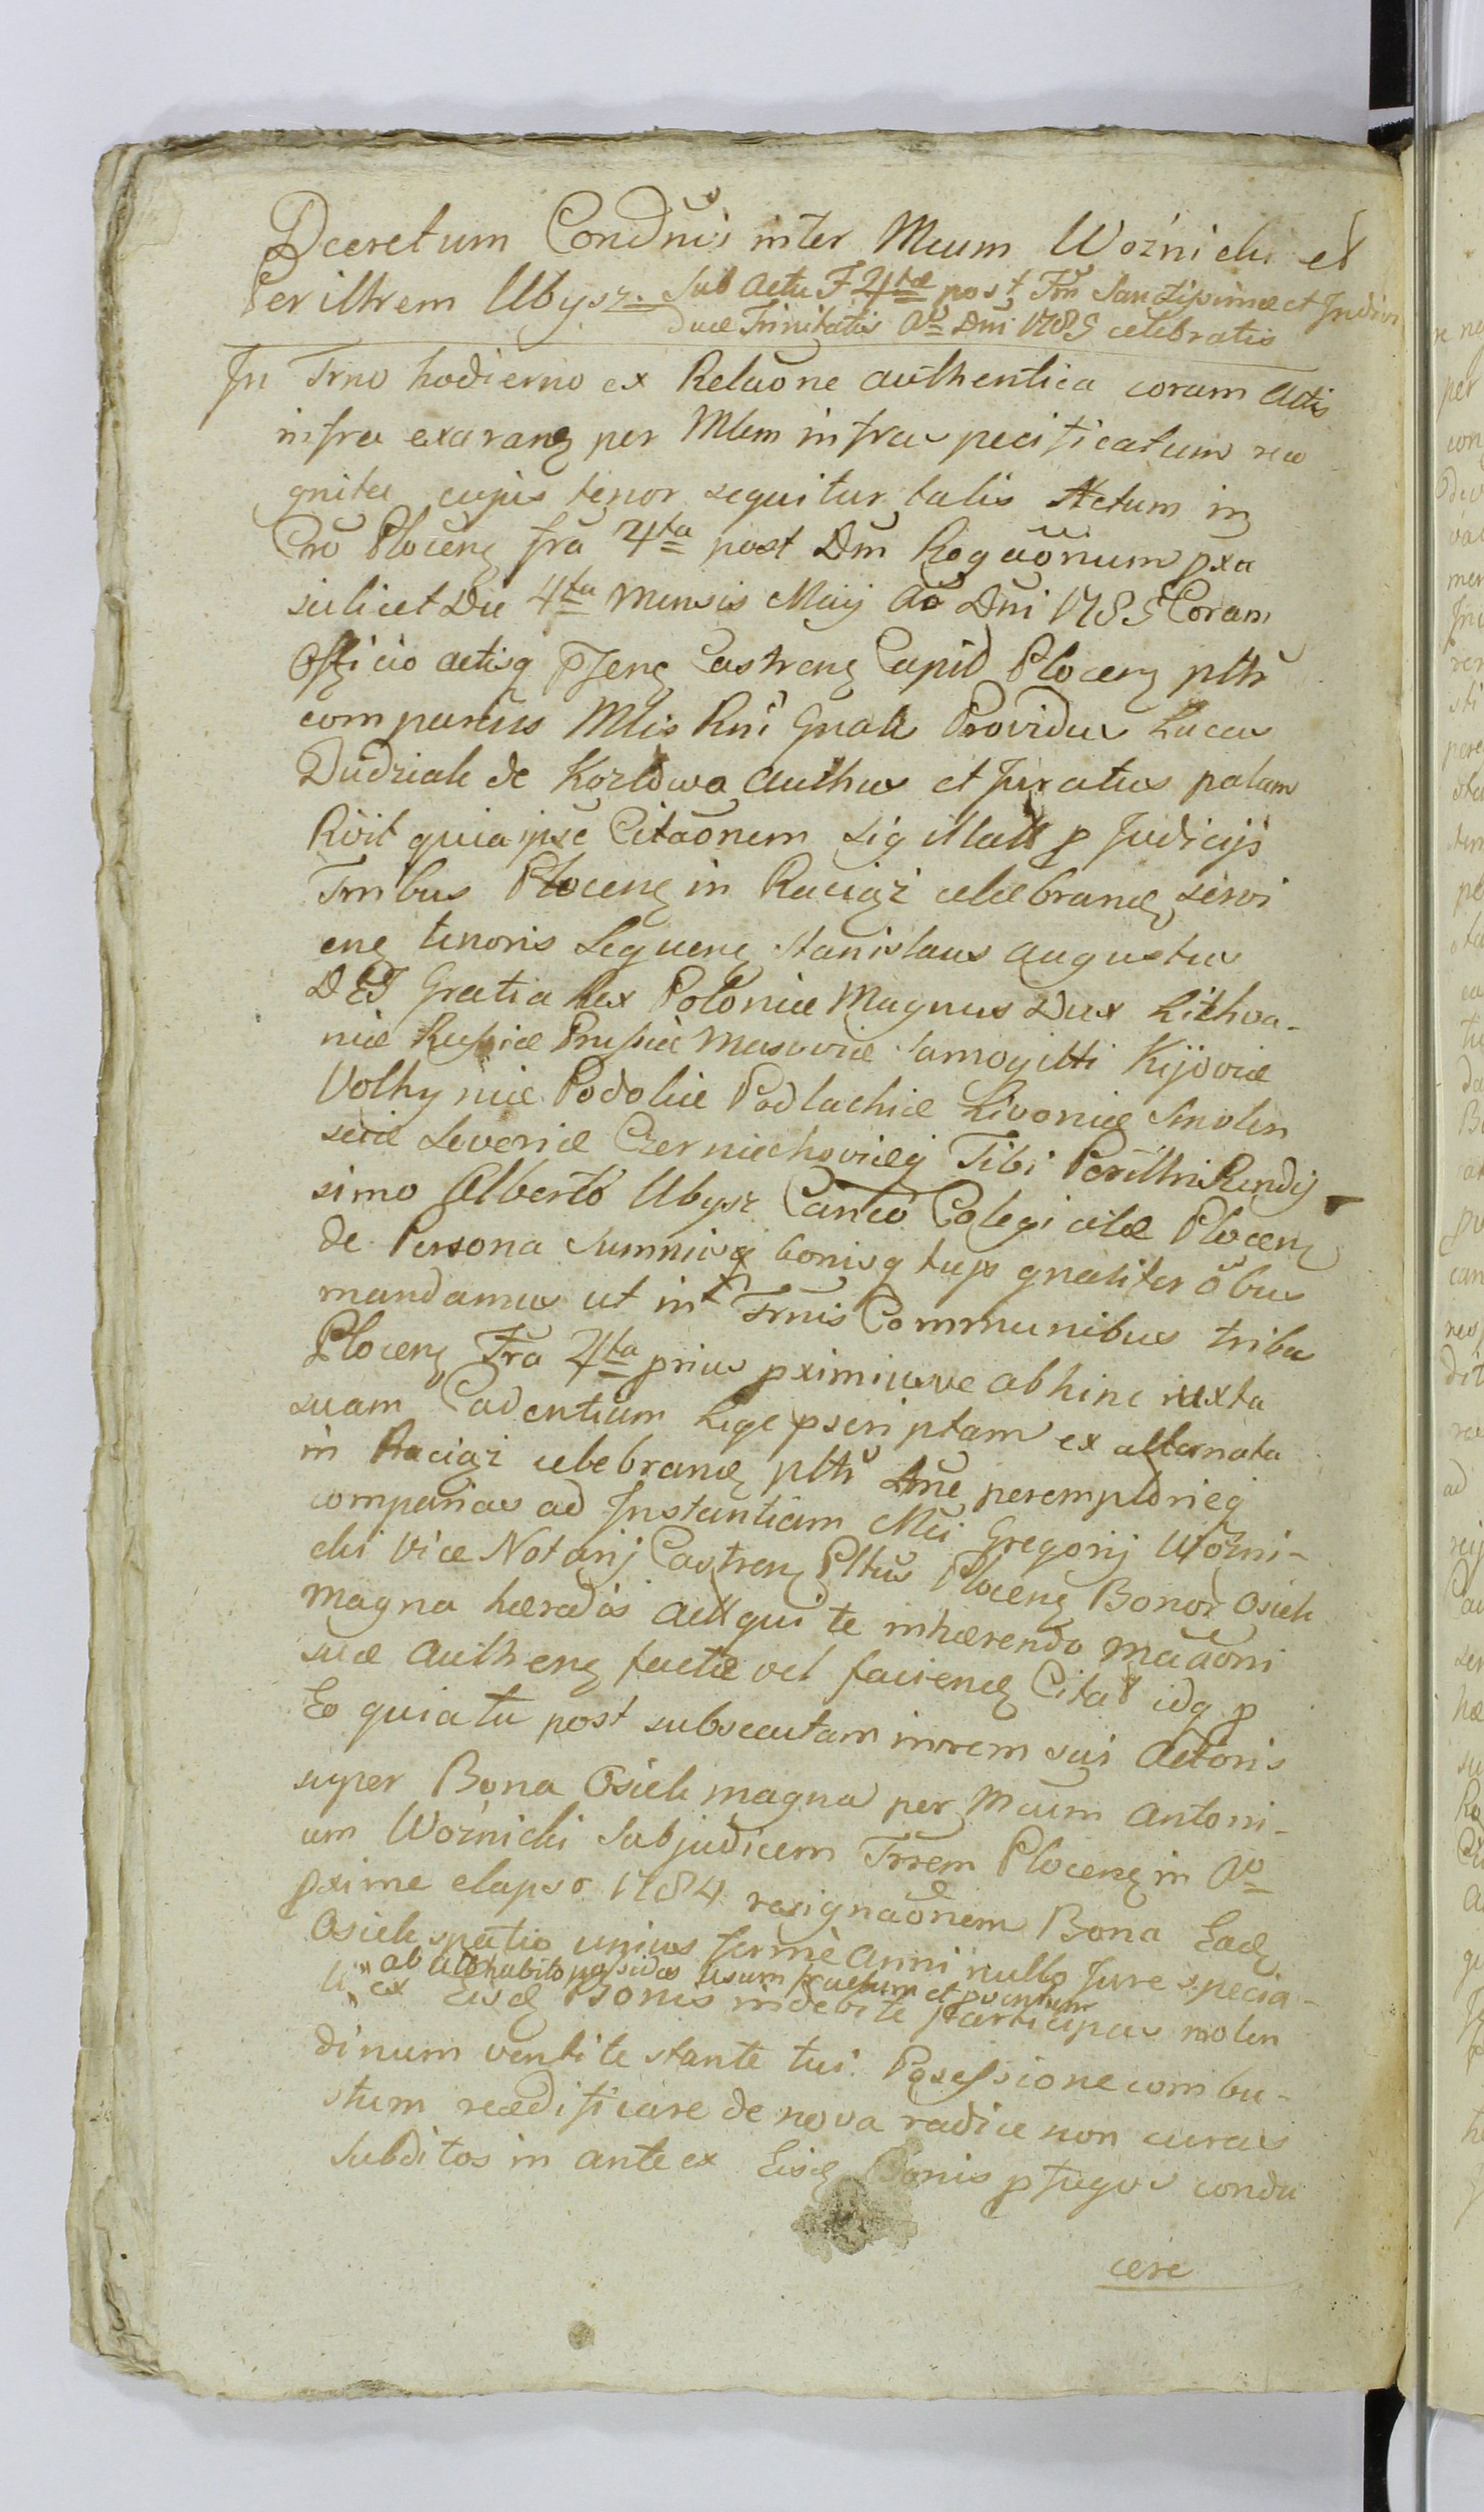 Dceretum Condnis inter Mcum Woźnicki et
Perillrem Ubysz. Sub Actu F 4tæ post Fm Sanctissimæ et Indivi
duæ Trinitatis Ao Dni 1785 celebratis
In Trno hodierno ex Relaone authentica coram Actis
infra exarang per Mlem infraspecificatum reco
gnita cujus tenor sequitur talis Actum in
Cro Ploceng fra 4ta post Dm Rogaonum pxa
scilicet Die 4ta Mensis Maij Ao Dni 1785 Coram
Officio actisq Castreng Capid Ploceng pltr
comparens Mlis Rni Gnalis Providus Lucas
Dudziak de Kozłowo Authus et Juratus palam
Rvit quia ipse Citaonem Sigillatt p Judicijs
Trribus Ploceng in Raciąż celebrand servi
eng tenoris Sequeng Stanislaus Augustus
DEJ Gratia Rex Poloniæ Magnus Dux Lithva-
niæ Russiæ Prussiæ Masoviæ Samogitti Kijoviæ
Volhyniæ Podoliæ Podlachiæ Livoniæ Smolen
sciæ Severiæ Czerniechoviæq Tibi Perillri Rendis
simo Alberto Ubysz Canco Colegiatæ Ploceng
de Persona Summisq bonisq tuis gnaliter obus
mandamus ut in Trrnis Communibus tribu
Ploceng Fra 4ta prius pximiusve abhinc iuxta
suam Cadentiam Lege pscriptam ex alternata
in Raciąż celebrand pltr Ane peremptorieq
compareas ad Instantiam Mci Gregorij Wozni-
cki Vice Notarij Castreng Pltus Ploceng Bonor Osiek
magna hæredis Act qui te inhærendo Maaoni
suæ Autheng factæ vel faciend Citat idq p
Eo quia tu post subsecutam inrem sui Actoris
super Bona Osiek magna per Mcum Antoni-
um Woźnicki Subjudicem Trrem Ploceng in Ao
pxime elapso 1784 resignaonem Bona Ead
Osiek spatio unius ferme Anni nullo Jure specia-
li ab Act habito possides usum fructum et proventum
ex Eisd Bonis indebite participas molen
dinum ventile stante tui Possessione combu-
stum reædificare de nova radice non curas
Subditos in ante ex Eisd Bonis pfugos condu
cere